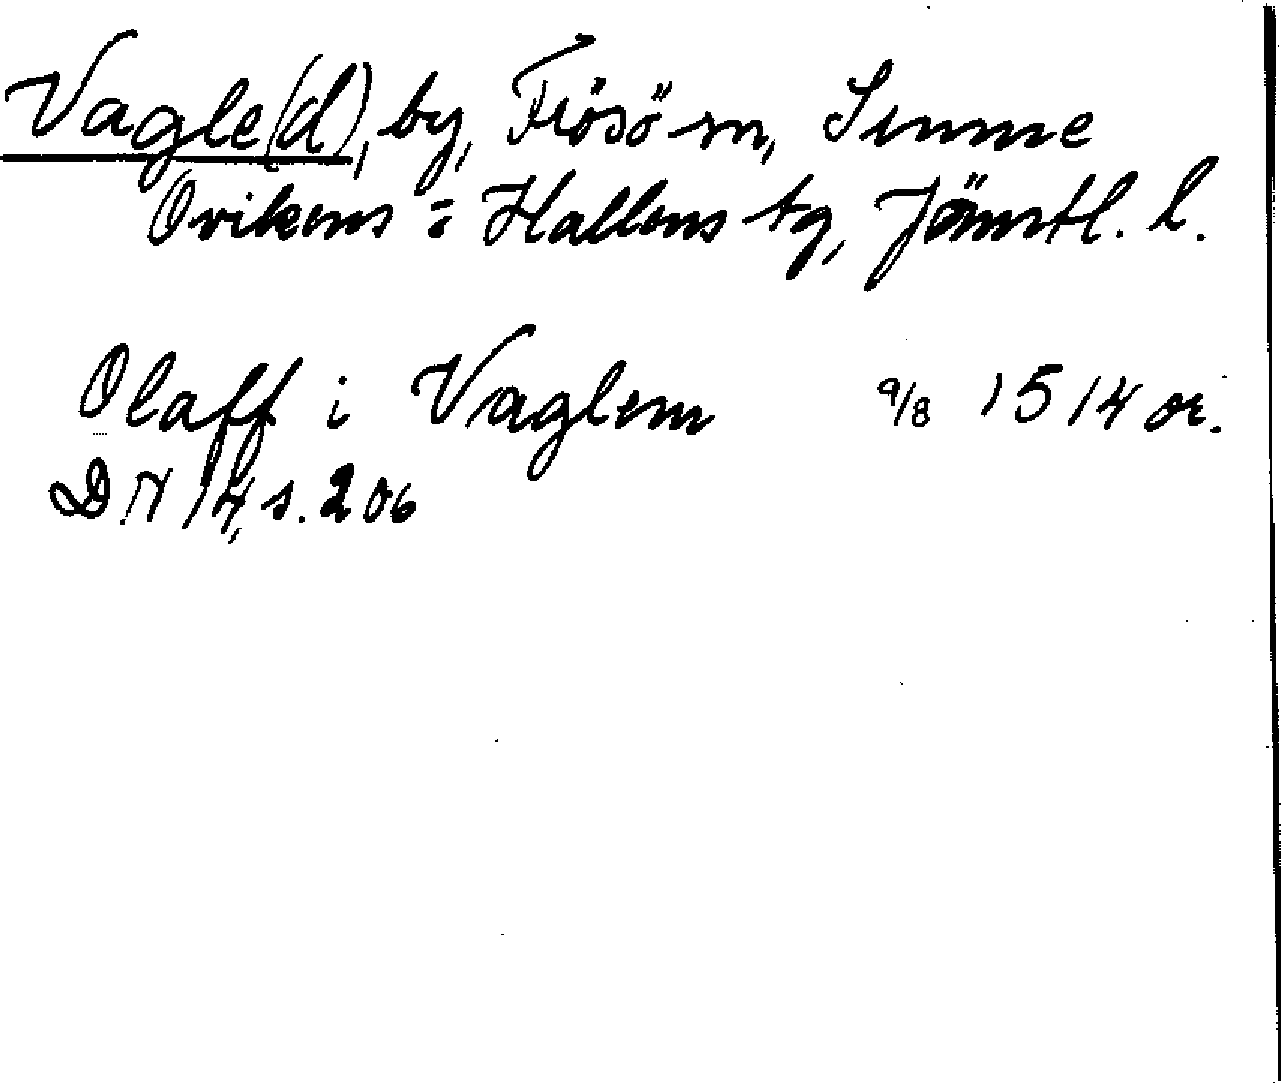 Vagle(d), by, Frösö sn, Sunne
Ovikens = Hallens tg, Jämtl. l.
Olaff i Vaglem 9/8 1514 or.
DN 14, s. 206